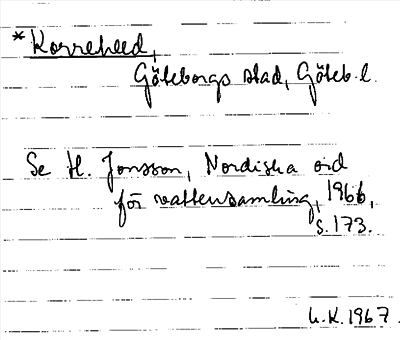 *Korrehed,
Göteborgs stad, Göteb. l.
Se H. Jonsson, Nordiska ord
för vattensamling, 1966,
s. 173.
L.K. 1967